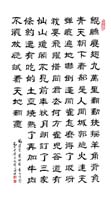 鯤鵬展翅九萬里翻動扶搖羊角背負
青天朝下看都是人間城郭炮火連天
彈痕遍地嚇倒蓬間雀怎麼得了哎呀
我要飛躍借問君去何方雀兒答道有
仙山瓊閣不見前年秋月朗訂了三家
條約還有吃的土豆燒熟了再加牛肉
不須放屁試看天地翻覆